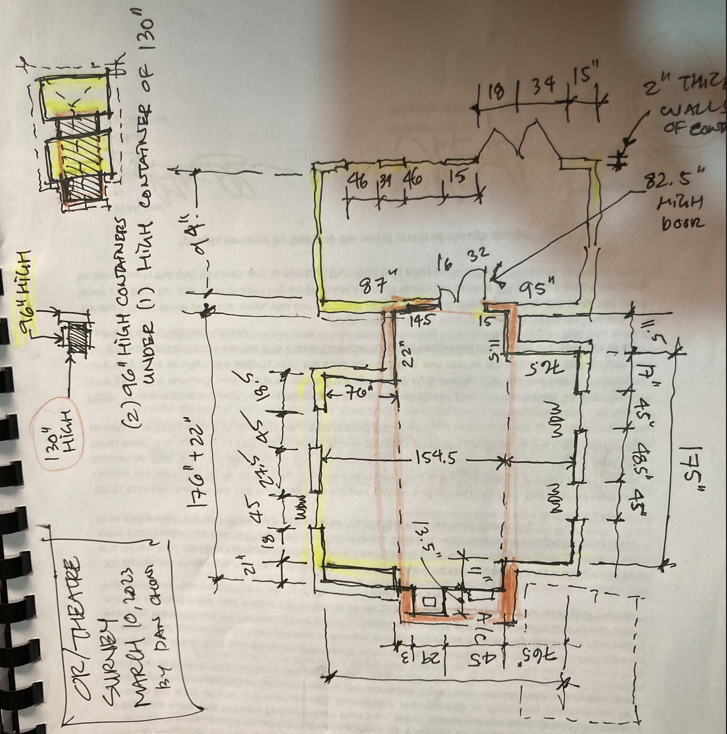 (2) 96" HIGH CONTAINERS
UNDER (1) HIGH CONTAINER OF 130"
96" HIGH
130"
HIGH
OR/THEATRE
SURVEY
MARCH 10, 2023
BY DAN
18 34 15"
2" THICK
WALLS
OF
82.5"
HIGH
DOOR
46 34 46 15
87" 16 32 95"
145 15
22" 11.5
76" 76.5
154.5
13.5"
11"
A/C
3 29 45 76.5"
176"+22"
18.5
45
24.5
45
18
21"
WDW
WDW
WDW
11.5
17"
45"
48.5"
45"
175"